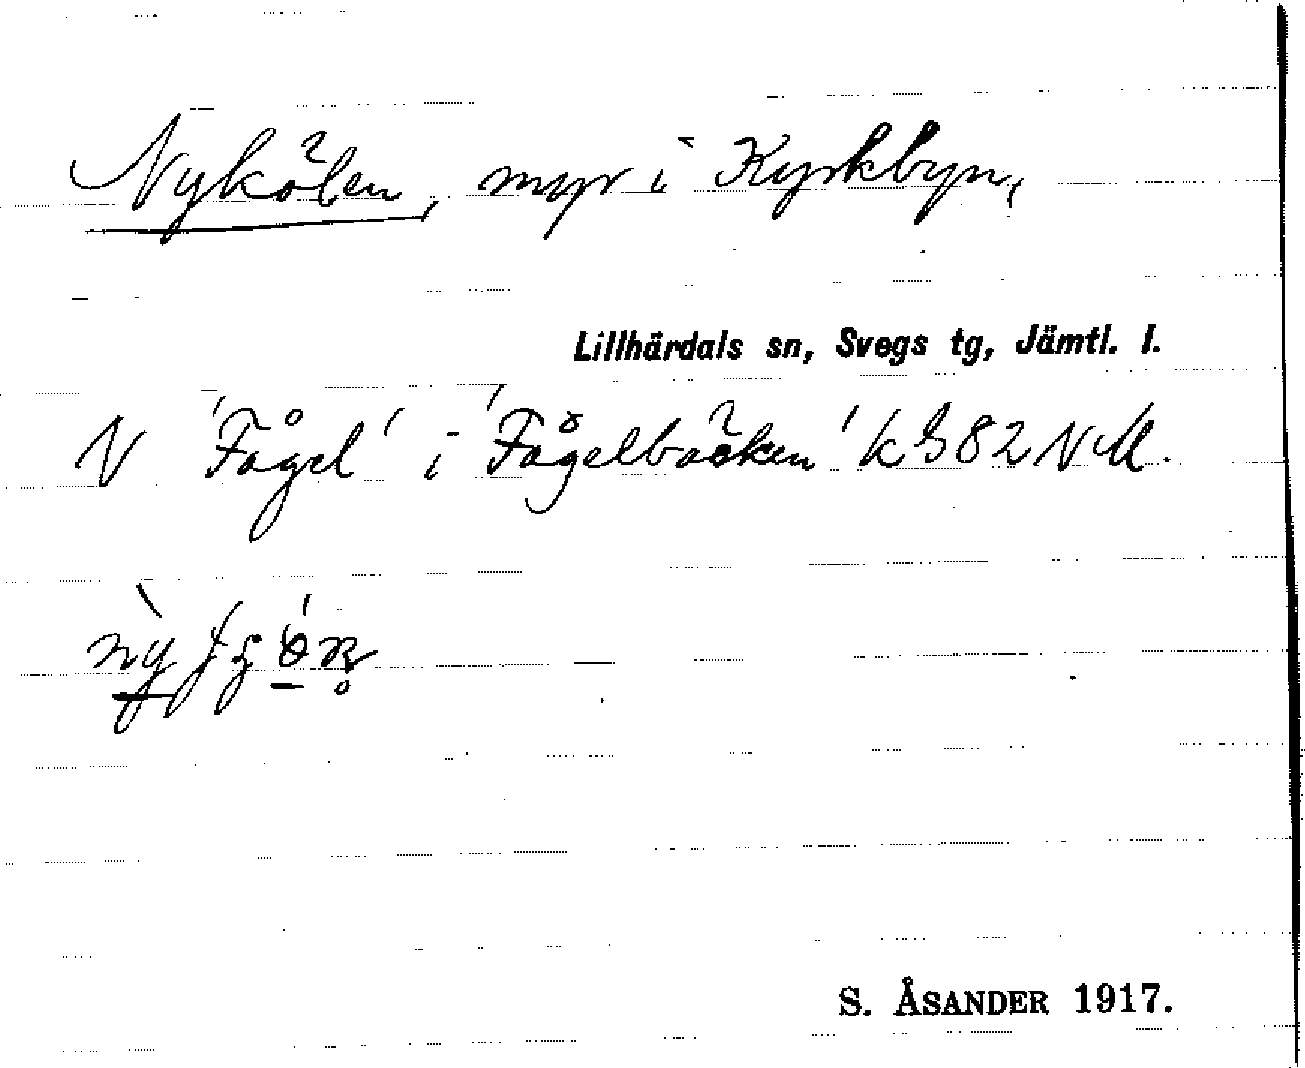 Nykölen, myr i Kyrkbyn,
Lillhärdals sn, Svegs tg, Jämtl. l.
N 'Fågel' i 'Fågelbäcken' k 382 N.M.
S. ÅSANDER 1917.